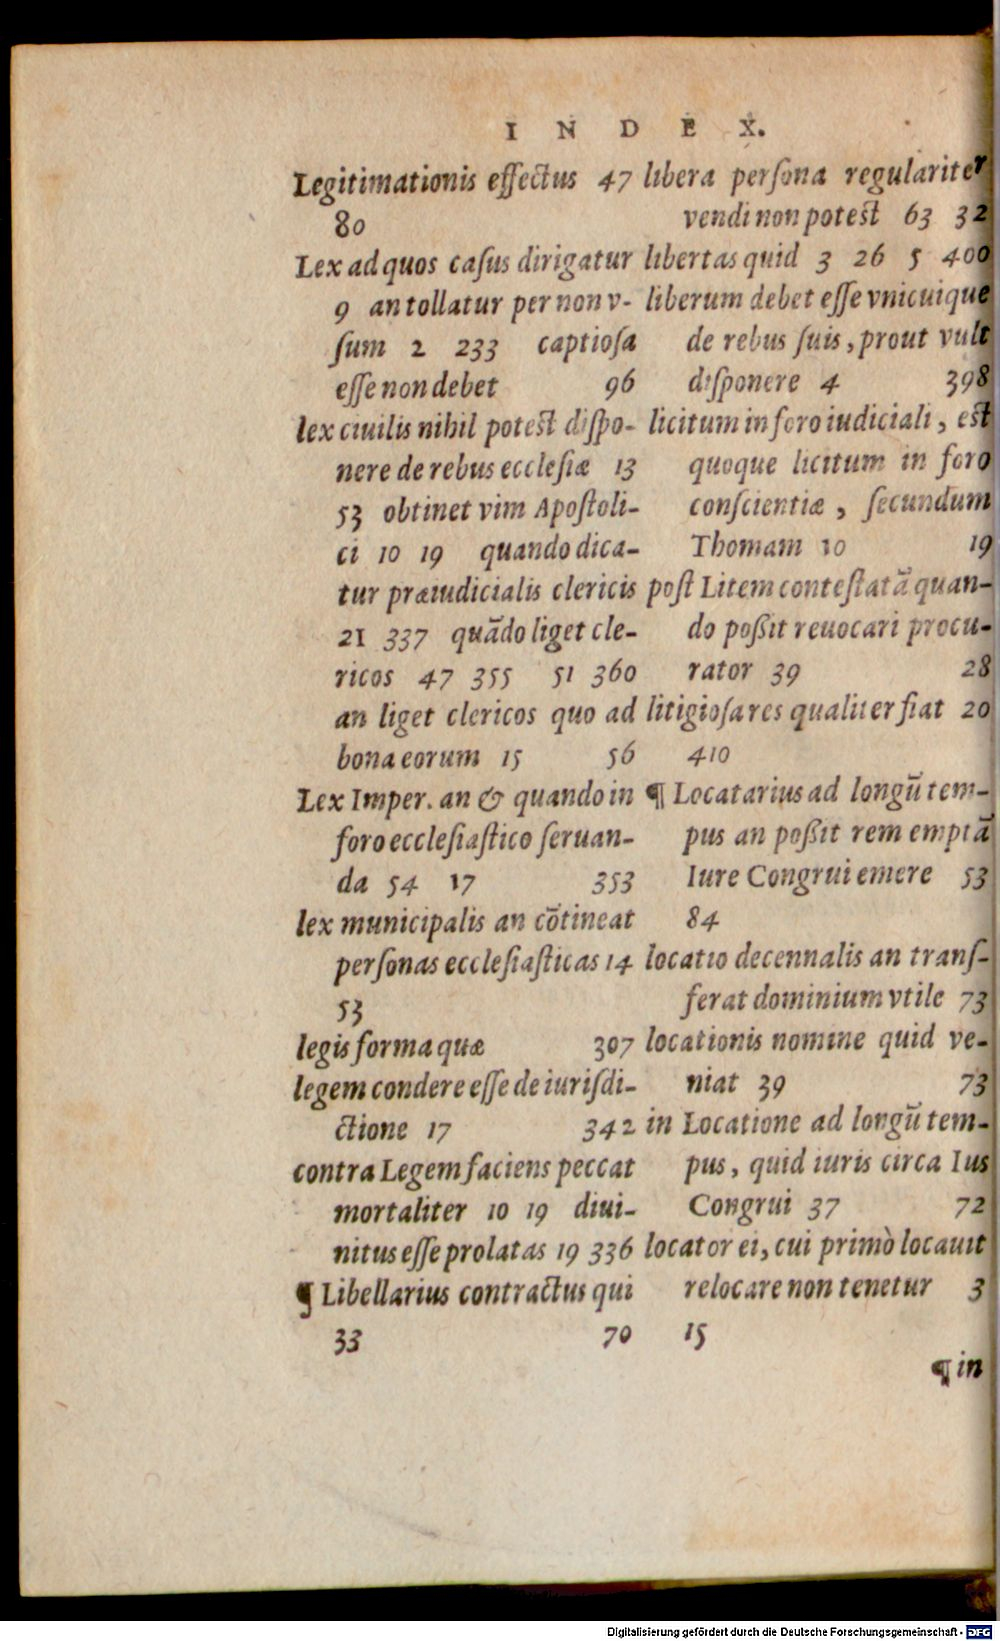 INDEX.
Legitimationis effectus 47
80
Lex ad quos casus dirigatur
9 an tollatur per non v-
sum 2 233 captiosa
esse non debet 96
lex ciuilis nihil potest dispo-
nere de rebus ecclesiæ 13
53 obtinet vim Apostoli-
ci 10 19 quando dica-
tur præiudicialis clericis
21 337 quãdo liget cle-
ricos 47 355 51 360
an liget clericos quo ad
bona eorum 15 56
Lex Imper. an & quando in
foro ecclesiastico seruan-
da 54 17 353
lex municipalis an cõtineat
personas ecclesiasticas 14
53
legis forma quæ 307
legem condere esse de iurisdi-
ctione 17 342
contra Legem faciens peccat
mortaliter 10 19 diui-
nitus esse prolatas 19 336
¶ Libellarius contractus qui
33 70
libera persona regulariter
vendi non potest 63 32
libertas quid 3 26 5 400
liberum debet esse vnicuique
de rebus suis, prout vult
disponere 4 398
licitum in foro iudiciali, est
quoque licitum in foro
conscientiæ, secundum
Thomam 10 19
post Litem contestatã quan-
do poßit reuocari procu-
rator 39 28
litigiosa res qualiter fiat 20
410
¶ Locatarius ad longũ tem-
pus an poßit rem emptã
Iure Congrui emere 53
84
locatio decennalis an trans-
ferat dominium vtile 73
locationis nomine quid ve-
niat 39 73
in Locatione ad longũ tem-
pus, quid iuris circa Ius
Congrui 37 72
locator ei, cui primò locauit
relocare non tenetur 3
15
¶ in
Digitalisierung gefördert durch die Deutsche Forschungsgemeinschaft - DFG